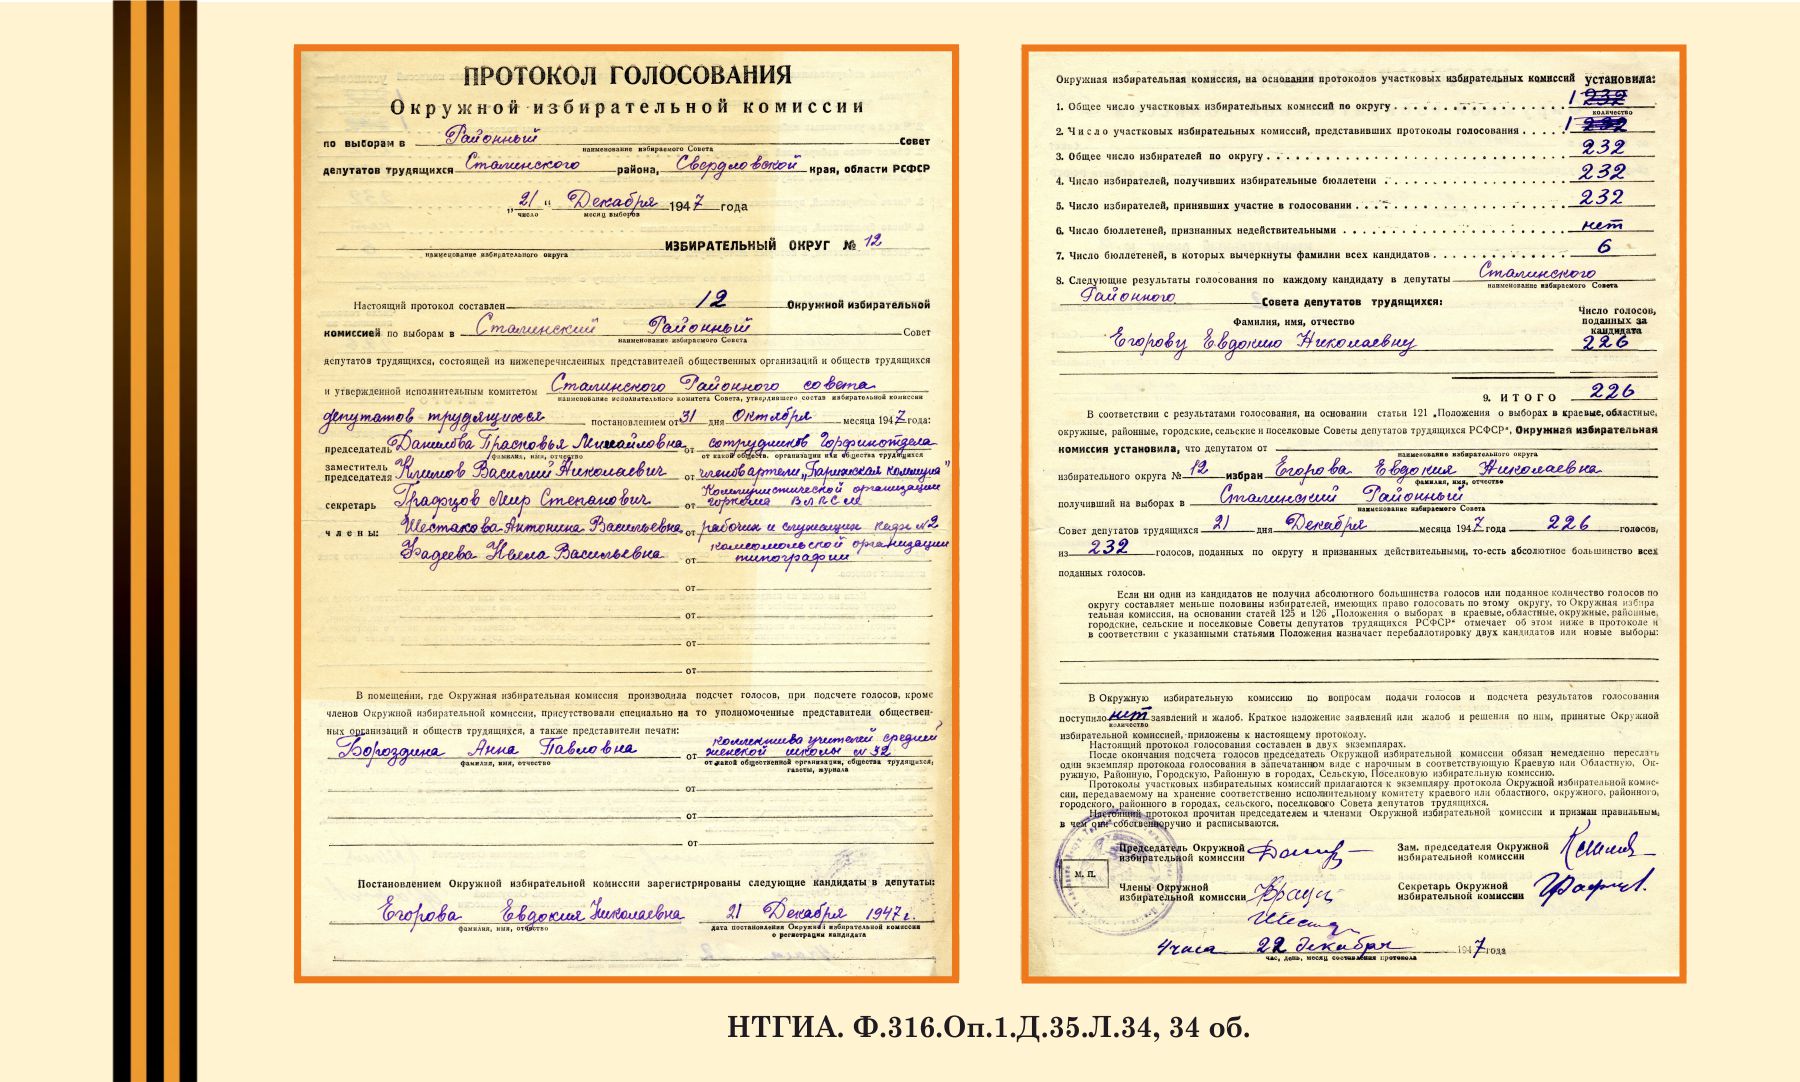 ПРОТОКОЛ ГОЛОСОВАНИЯ
Окружной избирательной комиссии
по выборам в Районный Совет
наименование избираемого Совета
депутатов трудящихся Сталинского района, Свердловской края, области РСФСР
„21“ Декабря 1947 года
число месяц выборов
ИЗБИРАТЕЛЬНЫЙ ОКРУГ № 12
наименование избирательного округа
Настоящий протокол составлен 12 Окружной избирательной
комиссией по выборам в Сталинский Районный Совет
наименование избираемого Совета
депутатов трудящихся, состоящей из нижеперечисленных представителей общественных организаций и обществ трудящихся
и утвержденной исполнительным комитетом Сталинского Районного совета
наименование исполнительного комитета Совета, утвердившего состав избирательной комиссии
депутатов трудящихся постановлением от 31 дня Октября месяца 1947 года:
председатель Данилова Прасковья Михайловна от сотрудников Горфинотдела
фамилия, имя, отчество от какой обществ. организации или общества трудящихся
заместитель председателя Климов Василий Николаевич от членов артели „Парижская коммуна"
секретарь Графцов Мир Степанович от Коммунистической организации горкома ВЛКСМ
члены: Шестакова Антонина Васильевна от рабочих и служащих №2
Фадеева Васильевна от комсомольской организации типографии
от
от
от
от
В помещении, где Окружная избирательная комиссия производила подсчет голосов, при подсчете голосов, кроме
членов Окружной избирательной комиссии, присутствовали специально на то уполномоченные представители обществен-
ных организаций и обществ трудящихся, а также представители печати:
Бороздина Анна Павловна от коллектива учителей средней женской школы №32
фамилия, имя, отчество от какой общественной организации, общества трудящихся,
газеты, журнала
от
от
от
Постановлением Окружной избирательной комиссии зарегистрированы следующие кандидаты в депутаты:
Егорова Евдокия Николаевна 21 Декабря 1947 г.
фамилия, имя, отчество дата постановления Окружной избирательной комиссии
о регистрации кандидата
Окружная избирательная комиссия, на основании протоколов участковых избирательных комиссий установила:
1. Общее число участковых избирательных комиссий по округу 1 232
количество
2. Число участковых избирательных комиссий, представивших протоколы голосования 1 232
3. Общее число избирателей по округу 232
4. Число избирателей, получивших избирательные бюллетени 232
5. Число избирателей, принявших участие в голосовании 232
6. Число бюллетеней, признанных недействительными нет
7. Число бюллетеней, в которых вычеркнуты фамилии всех кандидатов 6
8. Следующие результаты голосования по каждому кандидату в депутаты Сталинского
наименование избираемого Совета
Районного Совета депутатов трудящихся:
Фамилия, имя, отчество Число голосов, поданных за кандидата
Егорову Евдокию Николаевну 226
9. ИТОГО 226
В соответствии с результатами голосования, на основании статьи 121 „Положения о выборах в краевые, областные,
окружные, районные, городские, сельские и поселковые Советы депутатов трудящихся РСФСР“, Окружная избирательная
комиссия установила, что депутатом от
наименование избирательного округа
избирательного округа № 12 избран Егорова Евдокия Николаевна
фамилия, имя, отчество
получивший на выборах в Сталинский Районный
наименование избираемого Совета
Совет депутатов трудящихся 21 дня Декабря месяца 1947 года 226 голосов,
из 232 голосов, поданных по округу и признанных действительными, то-есть абсолютное большинство всех
поданных голосов.
Если ни один из кандидатов не получил абсолютного большинства голосов или поданное количество голосов по
округу составляет меньше половины избирателей, имеющих право голосовать по этому округу, то Окружная избира
тельная комиссия, на основании статей 125 и 126 „Положения о выборах в краевые, областные, окружные, районные,
городские, сельские и поселковые Советы депутатов трудящихся РСФСР“ отмечает об этом ниже в протоколе и
в соответствии с указанными статьями Положения назначает перебаллотировку двух кандидатов или новые выборы:
В Окружную избирательную комиссию по вопросам подачи голосов и подсчета результатов голосования
поступило нет заявлений и жалоб. Краткое изложение заявлений или жалоб и решения по ним, принятые Окружной
количество
избирательной комиссией, приложены к настоящему протоколу.
Настоящий протокол голосования составлен в двух экземплярах.
После окончания подсчета голосов председатель Окружной избирательной комиссии обязан немедленно переслать
один экземпляр протокола голосования в запечатанном виде с нарочным в соответствующую Краевую или Областную, Ок-
ружную, Районную, Городскую, Районную в городах, Сельскую, Поселковую избирательную комиссию.
Протоколы участковых избирательных комиссий прилагаются к экземпляру протокола Окружной избирательной комис-
сии, передаваемому на хранение соответственно исполнительному комитету краевого или областного, окружного, районного,
городского, районного в городах, сельского, поселкового Совета депутатов трудящихся.
Настоящий протокол прочитан председателем и членами Окружной избирательной комиссии и признан правильным,
в чем они собственноручно и расписываются.
Председатель Окружной избирательной комиссии Зам. председателя Окружной избирательной комиссии
М. П.
Члены Окружной избирательной комиссии Секретарь Окружной избирательной комиссии
4 часа 22 декабря 1947 года
час, день, месяц составления протокола
НТГИА. Ф.316.Оп.1.Д.35.Л.34, 34 об.